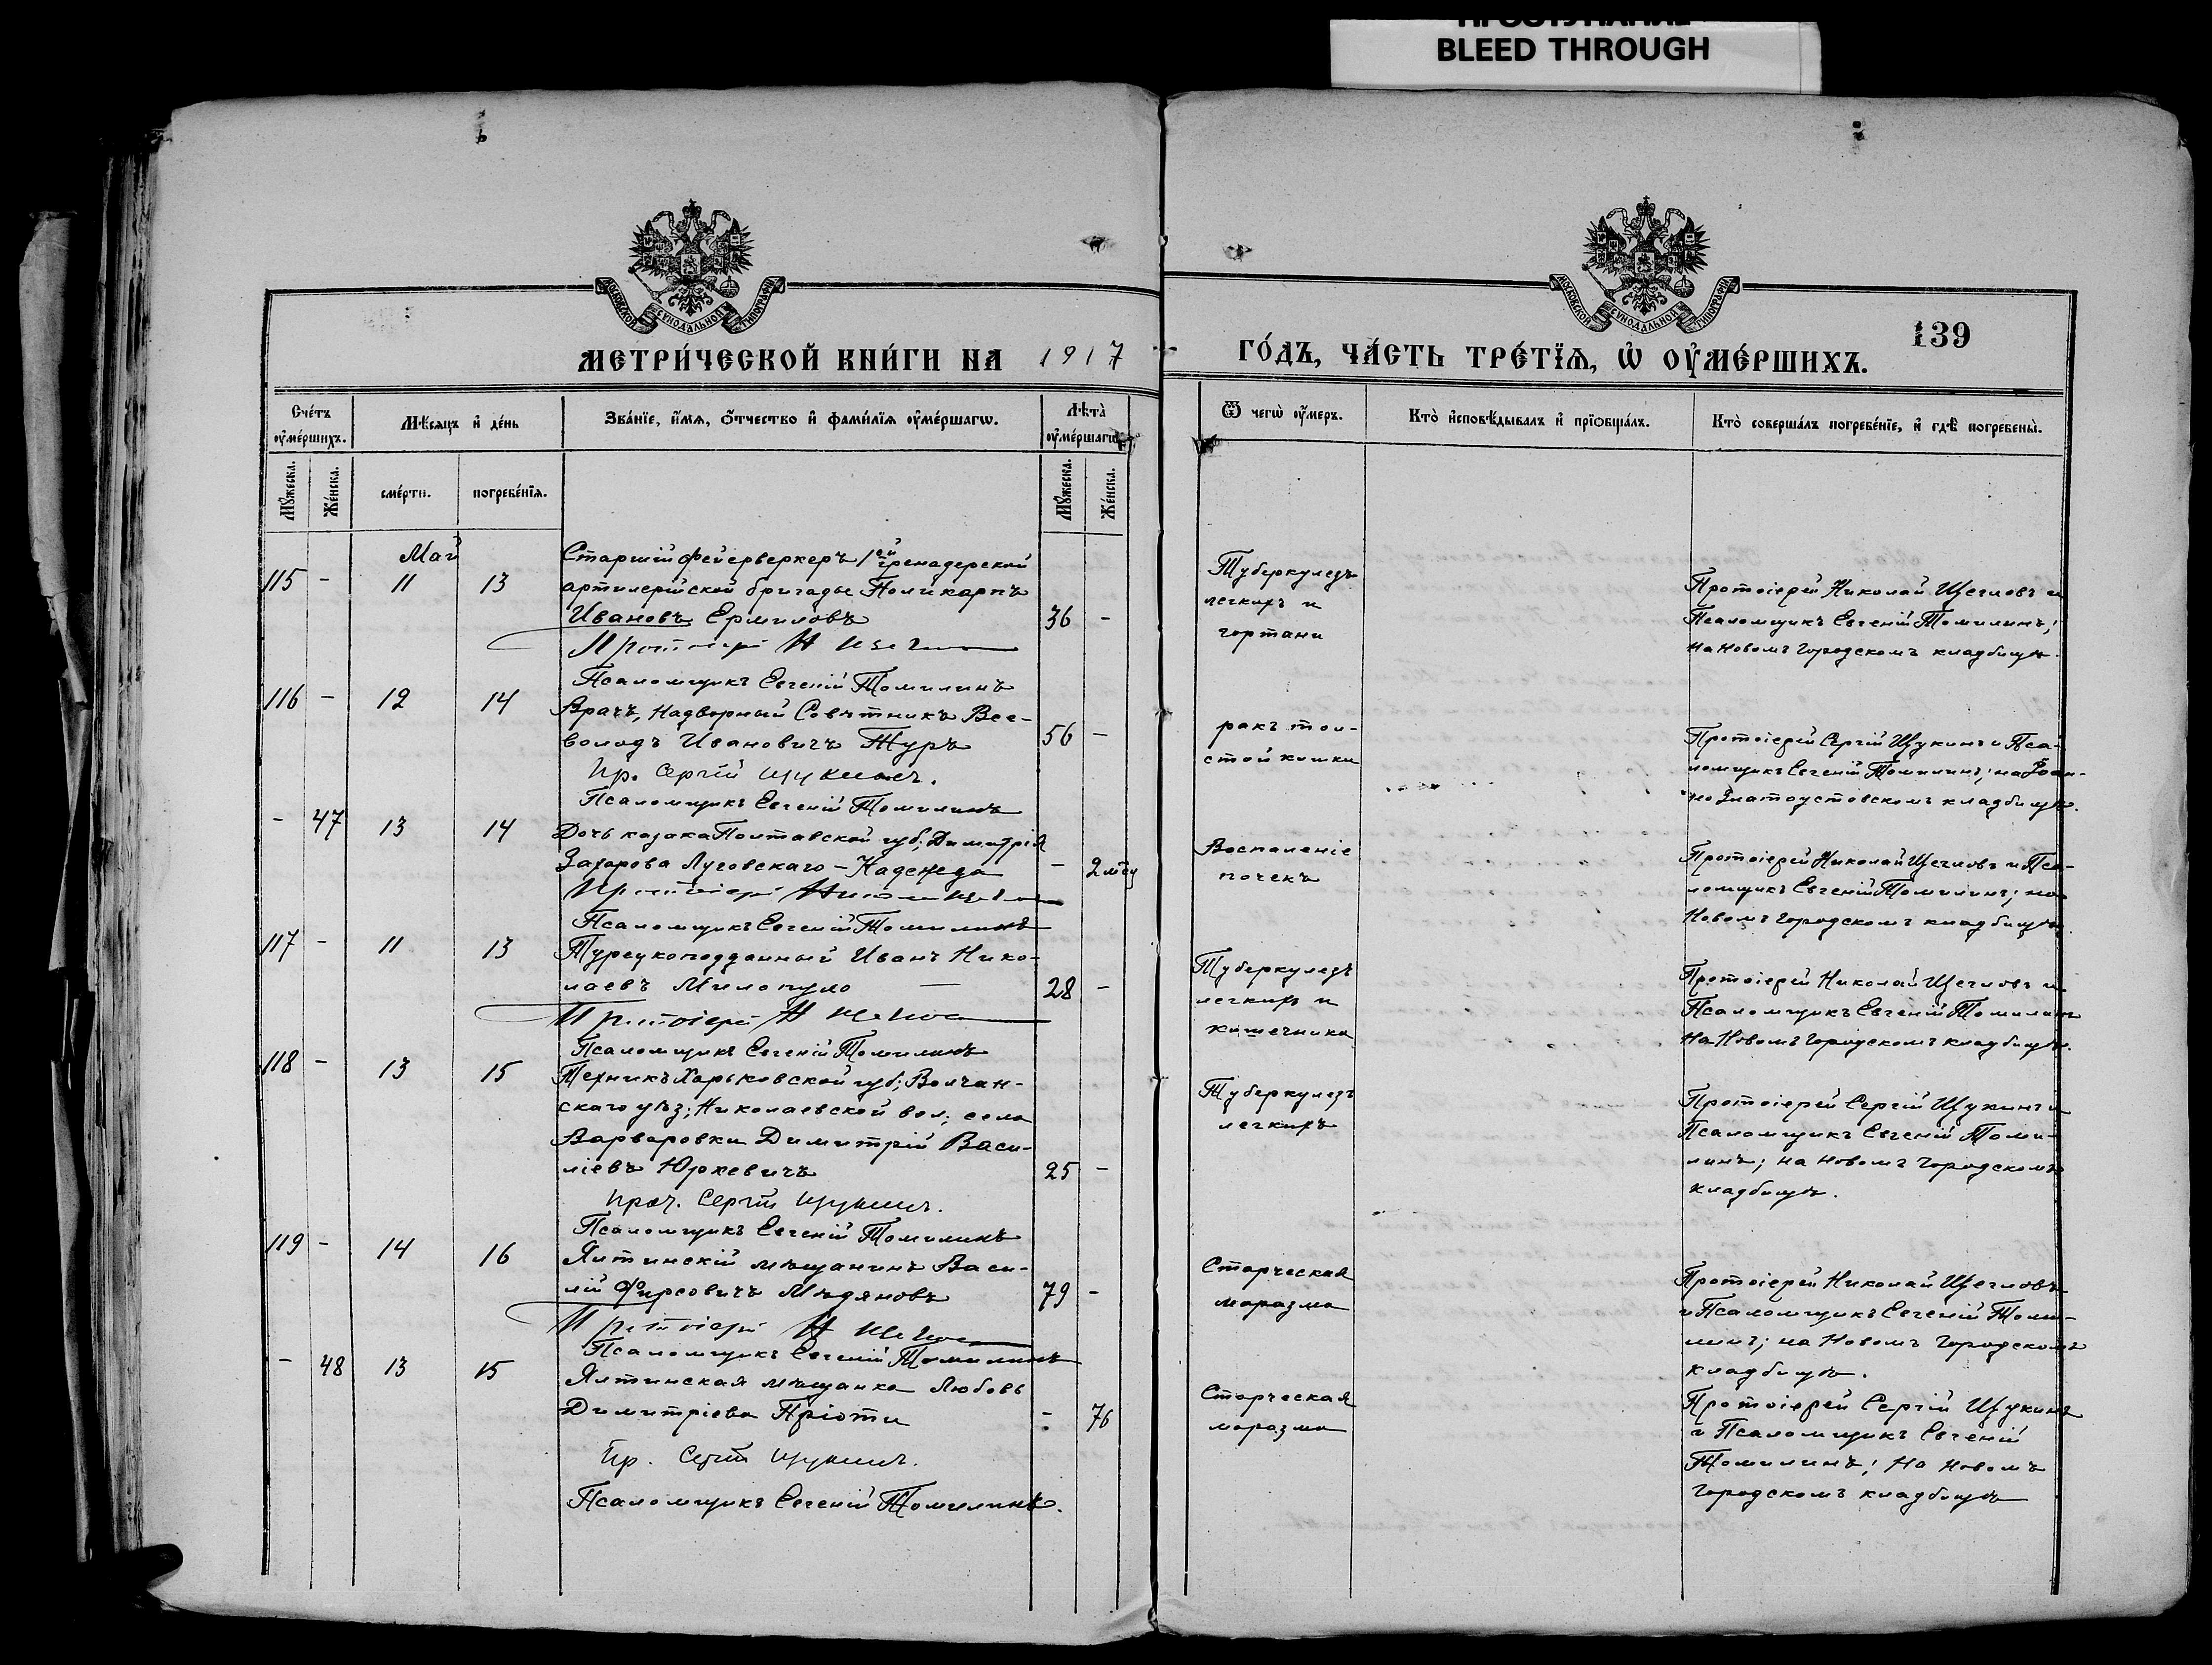 ПРОСТУПАНИЕ
BLEED THROUGH
МОСКОВСКОЙ СѴНОДАЛЬНОЙ ТИПОГРАФІИ
МОСКОВСКОЙ СѴНОДАЛЬНОЙ ТИПОГРАФІИ
139
МЕТРИ́ЧЕСКОЙ КНИ́ГИ НА 1917 ГО́ДЪ, ЧА́СТЬ ТРЕ́ТЇѦ, Ѡ҆ ОУ҆МЕ́РШИХЪ.
Сче́тъ оу҆ме́ршихъ.
Мѣ́сяцъ и҆ де́нь
Зва́нїе, и҆́мѧ, ѻ҆́тчество и҆ фами́лїѧ оу҆ме́ршагѡ.
Лѣта̀ оу҆ме́ршагѡ.
Ѿ чегѡ̀ оу҆́меръ.
Кто̀ и҆сповѣ́дывалъ и҆ прїѻбща́лъ.
Кто̀ соверша́лъ погребе́нїе, и҆ гдѣ̀ погребены̀.
Мꙋ́жеска.
Же́нска.
сме́рти.
погребе́нїѧ.
Мꙋ́жеска.
Же́нска.
Май
115 - 11 13
Старшій фейерверкеръ 1ой гренадерской
артилерійской бригады Поликарпъ
Ивановъ Ермиловъ 36 -
Протоіерей Н Щеглов
Псаломщикъ Евгеній Томилинъ
Туберкулезъ
легкихъ и
гортани
Протоіерей Николай Щегловъ и
Псаломщикъ Евгеній Томилинъ;
на Новомъ Городскомъ кладбищѣ.
116 - 12 14
Врачъ, Надворный Совѣтникъ Все-
володъ Ивановичъ Туръ 56 -
Пр. Сергій Щукинъ.
Псаломщикъ Евгеній Томилинъ
ракъ тол-
стой кишки
Протоіерей Сергій Щукинъ и Пса-
ломщикъ Евгеній Томилинъ; на Іоан-
но Златоустовскомъ кладбищѣ.
- 47 13 14
Дочь казака Полтавской губ; Димитрія
Захарова Луговскаго - Надежда - 2 лѣт
Протоіерей Николай Щеглов
Псаломщикъ Евгеній Томилинъ
Воспаленіе
почекъ
Протоіерей Николай Щегловъ и Пса-
ломщикъ Евгеній Томилинъ; на
Новомъ Городскомъ кладбищѣ.
117 - 11 13
Турецкоподданный Иванъ Нико-
лаевъ Милопуло 28 -
Протоіерей Н Щеглов
Псаломщикъ Евгеній Томилинъ
Туберкулезъ
легкихъ и
кишечника
Протоіерей Николай Щегловъ и
Псаломщикъ Евгеній Томилинъ
На Новомъ Городскомъ кладбищѣ.
118 - 13 15
Техникъ Харьковской губ; Волчан-
скаго уѣз; Николаевской вол; села
Варваровки Димитрій Васи-
ліевъ Юркевичъ 25 -
Прот. Сергій Щукинъ.
Псаломщикъ Евгеній Томилинъ
Туберкулезъ
легкихъ
Протоіерей Сергій Щукинъ и
Псаломщикъ Евгеній Томи-
линъ; на Новомъ Городскомъ
кладбищѣ.
119 - 14 16
Ялтинскій мѣщанинъ Васи-
лій Фирсовичъ Мѣдяновъ 79 -
Протоіерей Н Щеглов
Псаломщикъ Евгеній Томилинъ
Старческая
маразма
Протоіерей Николай Щегловъ
и Псаломщикъ Евгеній Томи-
линъ; на Новомъ Городскомъ
кладбищѣ.
- 48 13 15
Ялтинская мѣщанка Любовь
Димитріева Пріоти - 76
Пр. Сергій Щукинъ.
Псаломщикъ Евгеній Томилинъ.
Старческая
маразма
Протоіерей Сергій Щукинъ
и Псаломщикъ Евгеній
Томилинъ; На Новомъ
Городскомъ кладбищѣ